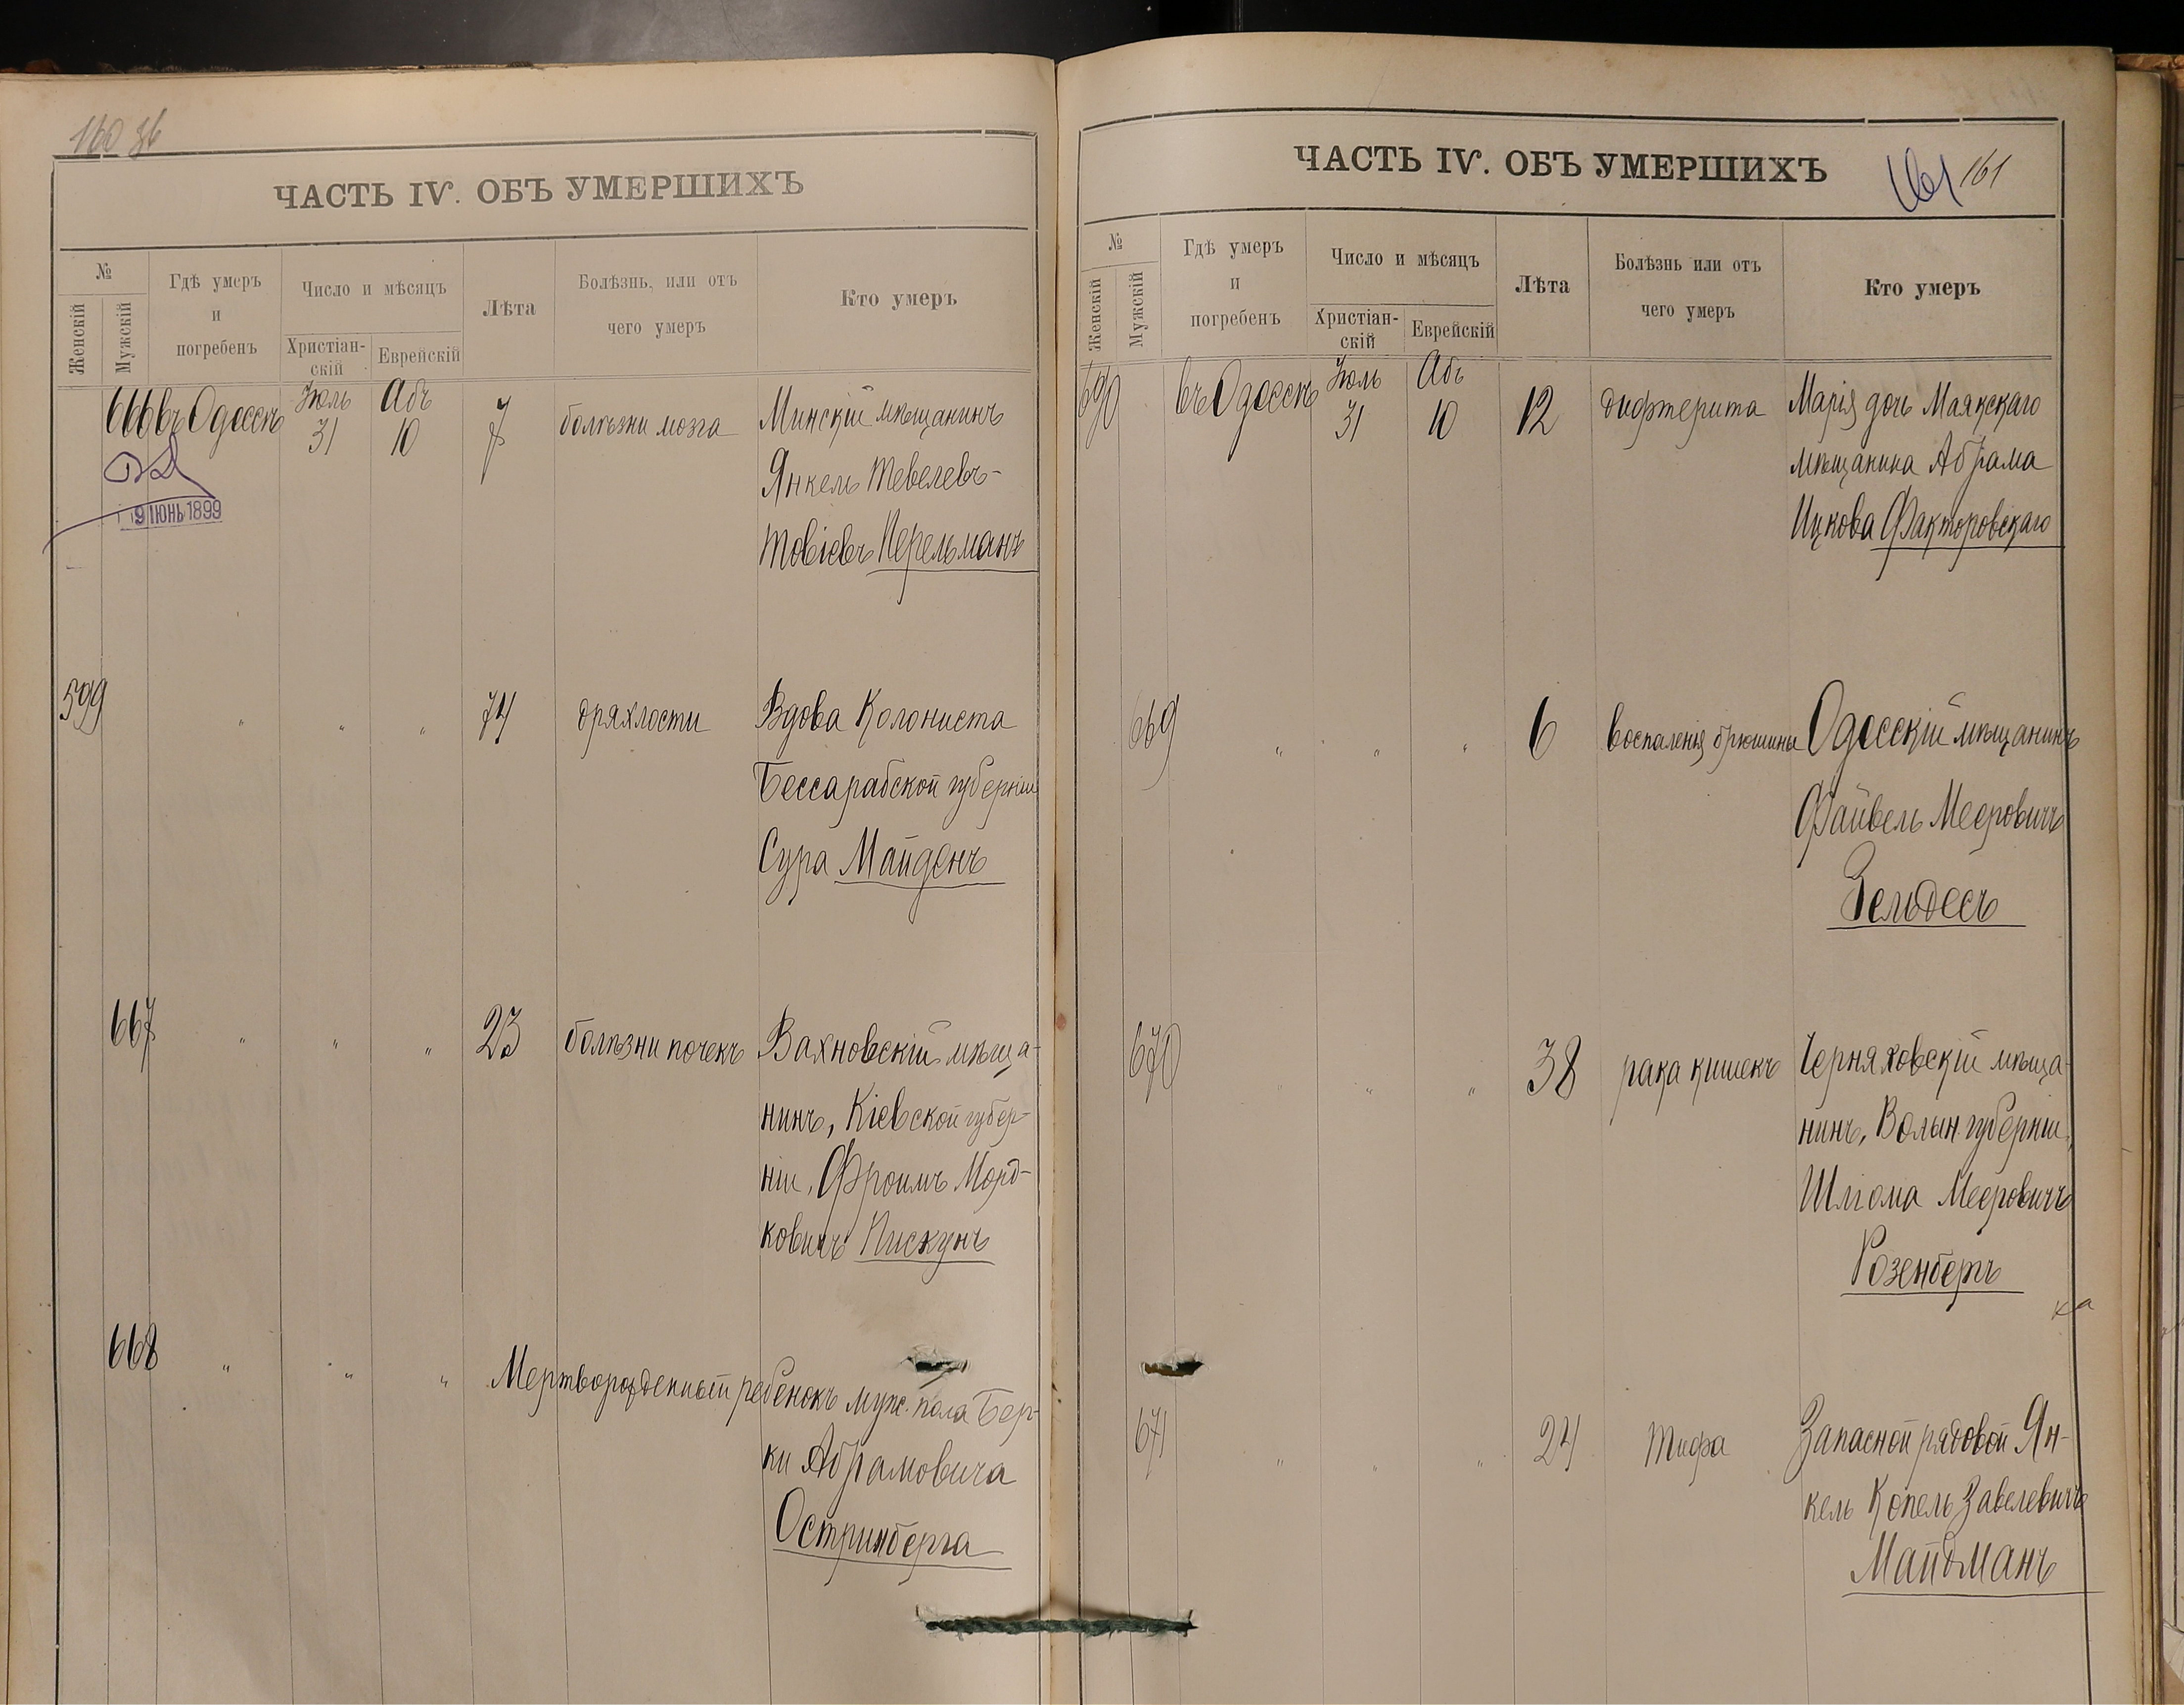 160 зв
ЧАСТЬ IV. ОБЪ УМЕРШИХЪ
№
Женскій
Мужскій
Гдѣ умеръ
и
погребенъ
Число и мѣсяцъ
Христіан-
скій
Еврейскій
Лѣта
Болѣзнь, или отъ
чего умеръ
Кто умеръ
666 въ Одессѣ Іюль 31 Абъ 10 7 болѣзни мозга Минскій мѣщанинъ
Янкель Тевелевъ-
Товіевъ Перельманъ
9 ІЮНЬ 1899
599 " " " 74 дряхлости Вдова Колониста
Бессарабской губерніи
Сура Майденъ
667 " " " 23 болѣзни почекъ Вахновскій мѣща-
нинъ, Кіевской губер-
ніи, Фроимъ Морд-
ковичъ Пискунъ
668 " " " Мертворожденный ребенокъ муж. пола Бер-
ки Абрамовича
Остринберга
ЧАСТЬ IV. ОБЪ УМЕРШИХЪ
161 161
№
Женскій
Мужскій
Гдѣ умеръ
и
погребенъ
Число и мѣсяцъ
Христіан-
скій
Еврейскій
Лѣта
Болѣзнь или отъ
чего умеръ
Кто умеръ
въ Одессѣ Іюль 31 Абъ 10 12 дифтерита Марія дочь Маякскаго
мѣщанина Абрама
Ицкова Факторовскаго
669 " " " 6 воспаленія брюшины Одесскій мѣщанинъ
Файвель Мееровичъ
Зельдесъ
670 " " " 38 рака кишекъ Черняховскій мѣща-
нинъ, Волын губерніи,
Шлома Мееровичъ
Розенбергъ
671 " " " 24 Тифа Запасной рядовой Ян-
кель Копель Завелевичъ
Майдманъ